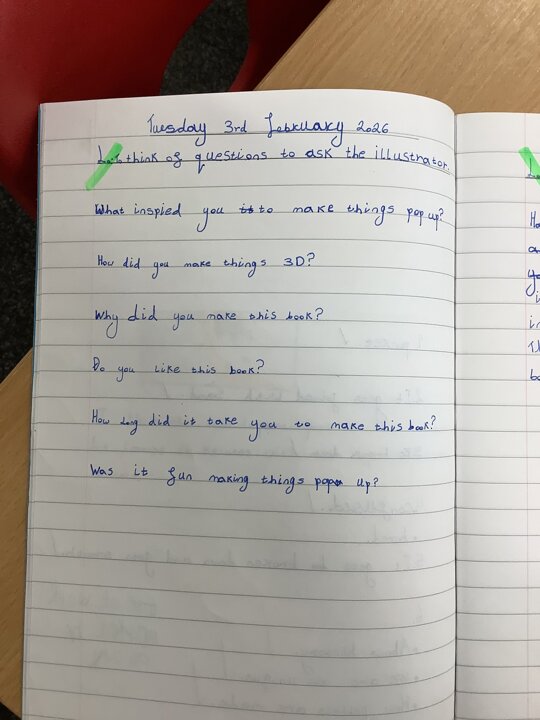 Tuesday 3rd February 2026
L.O. To think of questions to ask the illustrator.
What inspied you to make things pop up?
How did you make things 3D?
Why did you make this book?
Do you like this book?
How long did it take you to make this book?
Was it fun making things pop up?